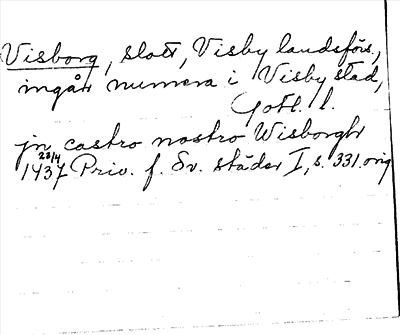 Visborg, slott, Visby landsförs.,
ingår numera i Visby stad,
Gotl. l.
jn castro nostro Wisborgh
28/4 1437 Priv. f. Sv. städer I, s. 331. orig